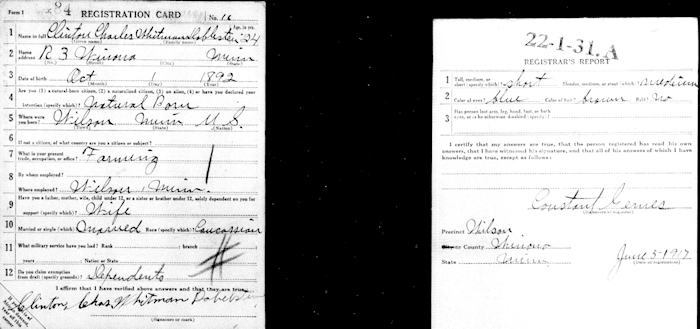 Form 1 284 REGISTRATION CARD No. 16
Age, in yrs.
1 Name in full Clinton Charles Whitman 24
(Given name) (Family name)
2 Home address R 3 Winona Minn
(No.) (Street) (City) (State)
3 Date of birth Oct 1 1892
(Month) (Day) (Year)
4 Are you (1) a natural-born citizen, (2) a naturalized citizen, (3) an alien, (4) or have you declared your
intention (specify which)? Natural Born
5 Where were you born? Wilson Minn U.S.
(Town) (State) (Nation)
6 If not a citizen, of what country are you a citizen or subject?
7 What is your present trade, occupation, or office? Farming
8 By whom employed?
Where employed? Wilson, Minn.
9 Have you a father, mother, wife, child under 12, or a sister or brother under 12, solely dependent on you for
support (specify which)? Wife
10 Married or single (which)? Married Race (specify which)? Caucassian
11 What military service have you had? Rank branch
years Nation or State
12 Do you claim exemption from draft (specify grounds)? Dependents
I affirm that I have verified above answers and that they are true.
Clinton Chas Whitman
(Signature or mark)
22-1-31.A
REGISTRAR'S REPORT
1 Tall, medium, or short (specify which)? short Slender, medium, or stout (which)? medium
2 Color of eyes? blue Color of hair? brown Bald? No
3 Has person lost arm, leg, hand, foot, or both eyes, or is he otherwise disabled (specify)?
I certify that my answers are true, that the person registered has read his own
answers, that I have witnessed his signature, and that all of his answers of which I have
knowledge are true, except as follows:
Constant
(Signature of registrar)
Precinct Wilson
County Winona
State Minn June 5-1917
(Date of registration)